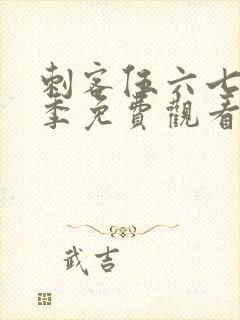 刺客伍六七
季免費觀看
武吉